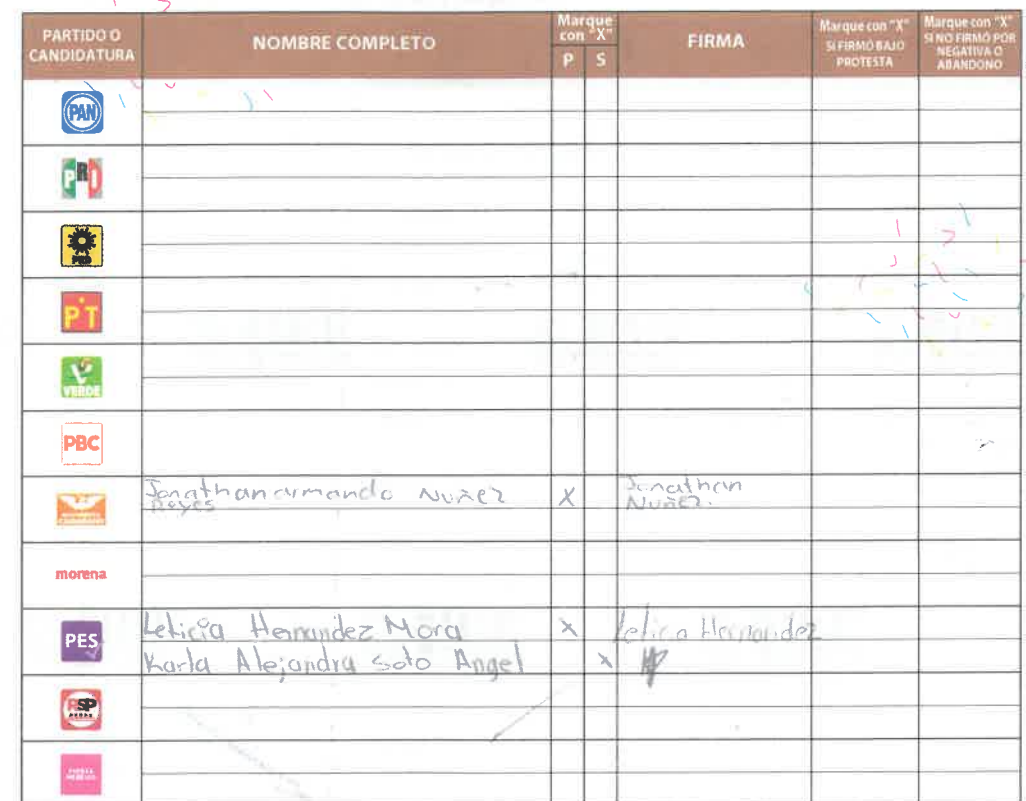 PARTIDO O CANDIDATURA
NOMBRE COMPLETO
Marque con "X"
P S
FIRMA
Marque con "X" SI FIRMÓ BAJO PROTESTA
Marque con "X" SI NO FIRMÓ POR NEGATIVA O ABANDONO
PAN
PRI
PRD
PT
VERDE
PBC
Jonathan armando Nuñez X Jonathan
Reyes Nuñez.
morena
PES
Leticia Hernandez Mora X Leticia Hernandez
Karla Alejandra Soto Angel X
RSP